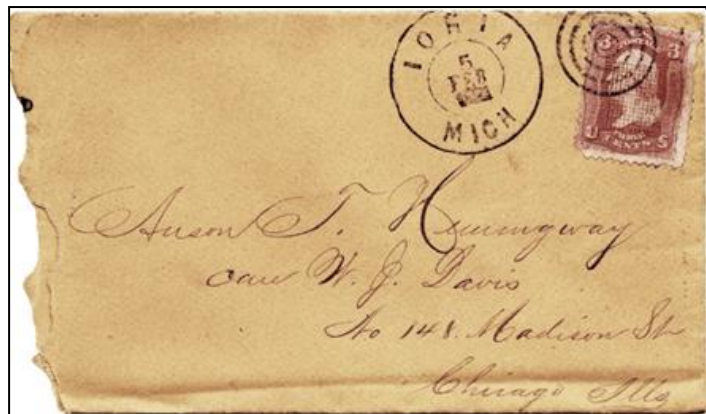 IONIA
5
FEB
MICH
3 3
U S
CENTS
Anson T. Hemingway
care W. J. Davis
No 148. Madison St
Chicago Ills